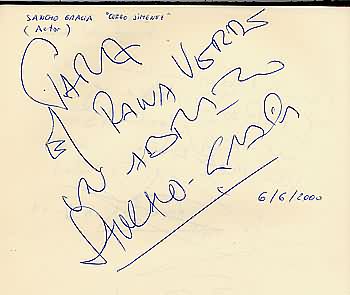 SANCHO GRACIA "CURRO JIMENEZ"
(Actor)
PARA
RAWA VERDES
UN ABRAZO
SANCHO-GRACIA
6/6/2000